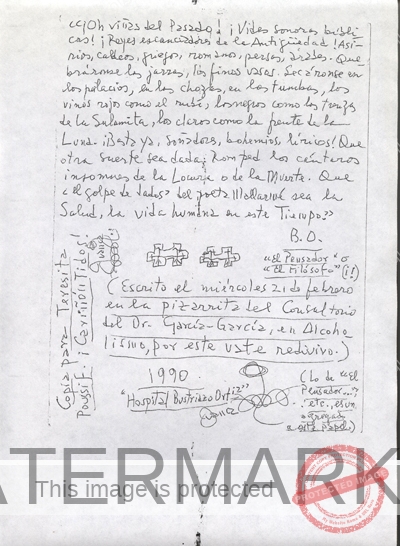 "¡Oh viñas del Pasado! ¡Vides sonoras bíbli-
cas! ¡Reyes escanciadores de la Antigüedad! Asi-
rios, caldeos, griegos, romanos, persas, árabes. Que-
bráronse las jarras, los finos vasos. Secáronse en
los palacios, en las chozas, en las tumbas, los
vinos rojos como el rubí, los negros como las trenzas
de la Sulamita, los claros como la frente de la
Luna. ¡Basta ya, soñadores, bohemios, líricos! Que
otra suerte sea dada; romped los cántaros
insomnes de la Locura o de la Muerte. Que
"el golpe de dados" del poeta Mallarmé sea la
Salud, la vida humana en este Tiempo"
B.O.
"El Pensador" o
"El Filósofo" (¡!)
(Escrito el miércoles 21 de febrero
en la pizarrita del Consultorio
del Dr. García-García, en Alcoho-
lismo, por este vate redivivo.)
1990
"Hospital Bustriazo Ortiz"
(Lo de "el
Pensador..."
etc., es un
agregado
a este papel)
Copia para Teresita
Poussif. ¡Cariñoñitodos!
WATERMARK
This image is protected
PROTECTED IMAGE